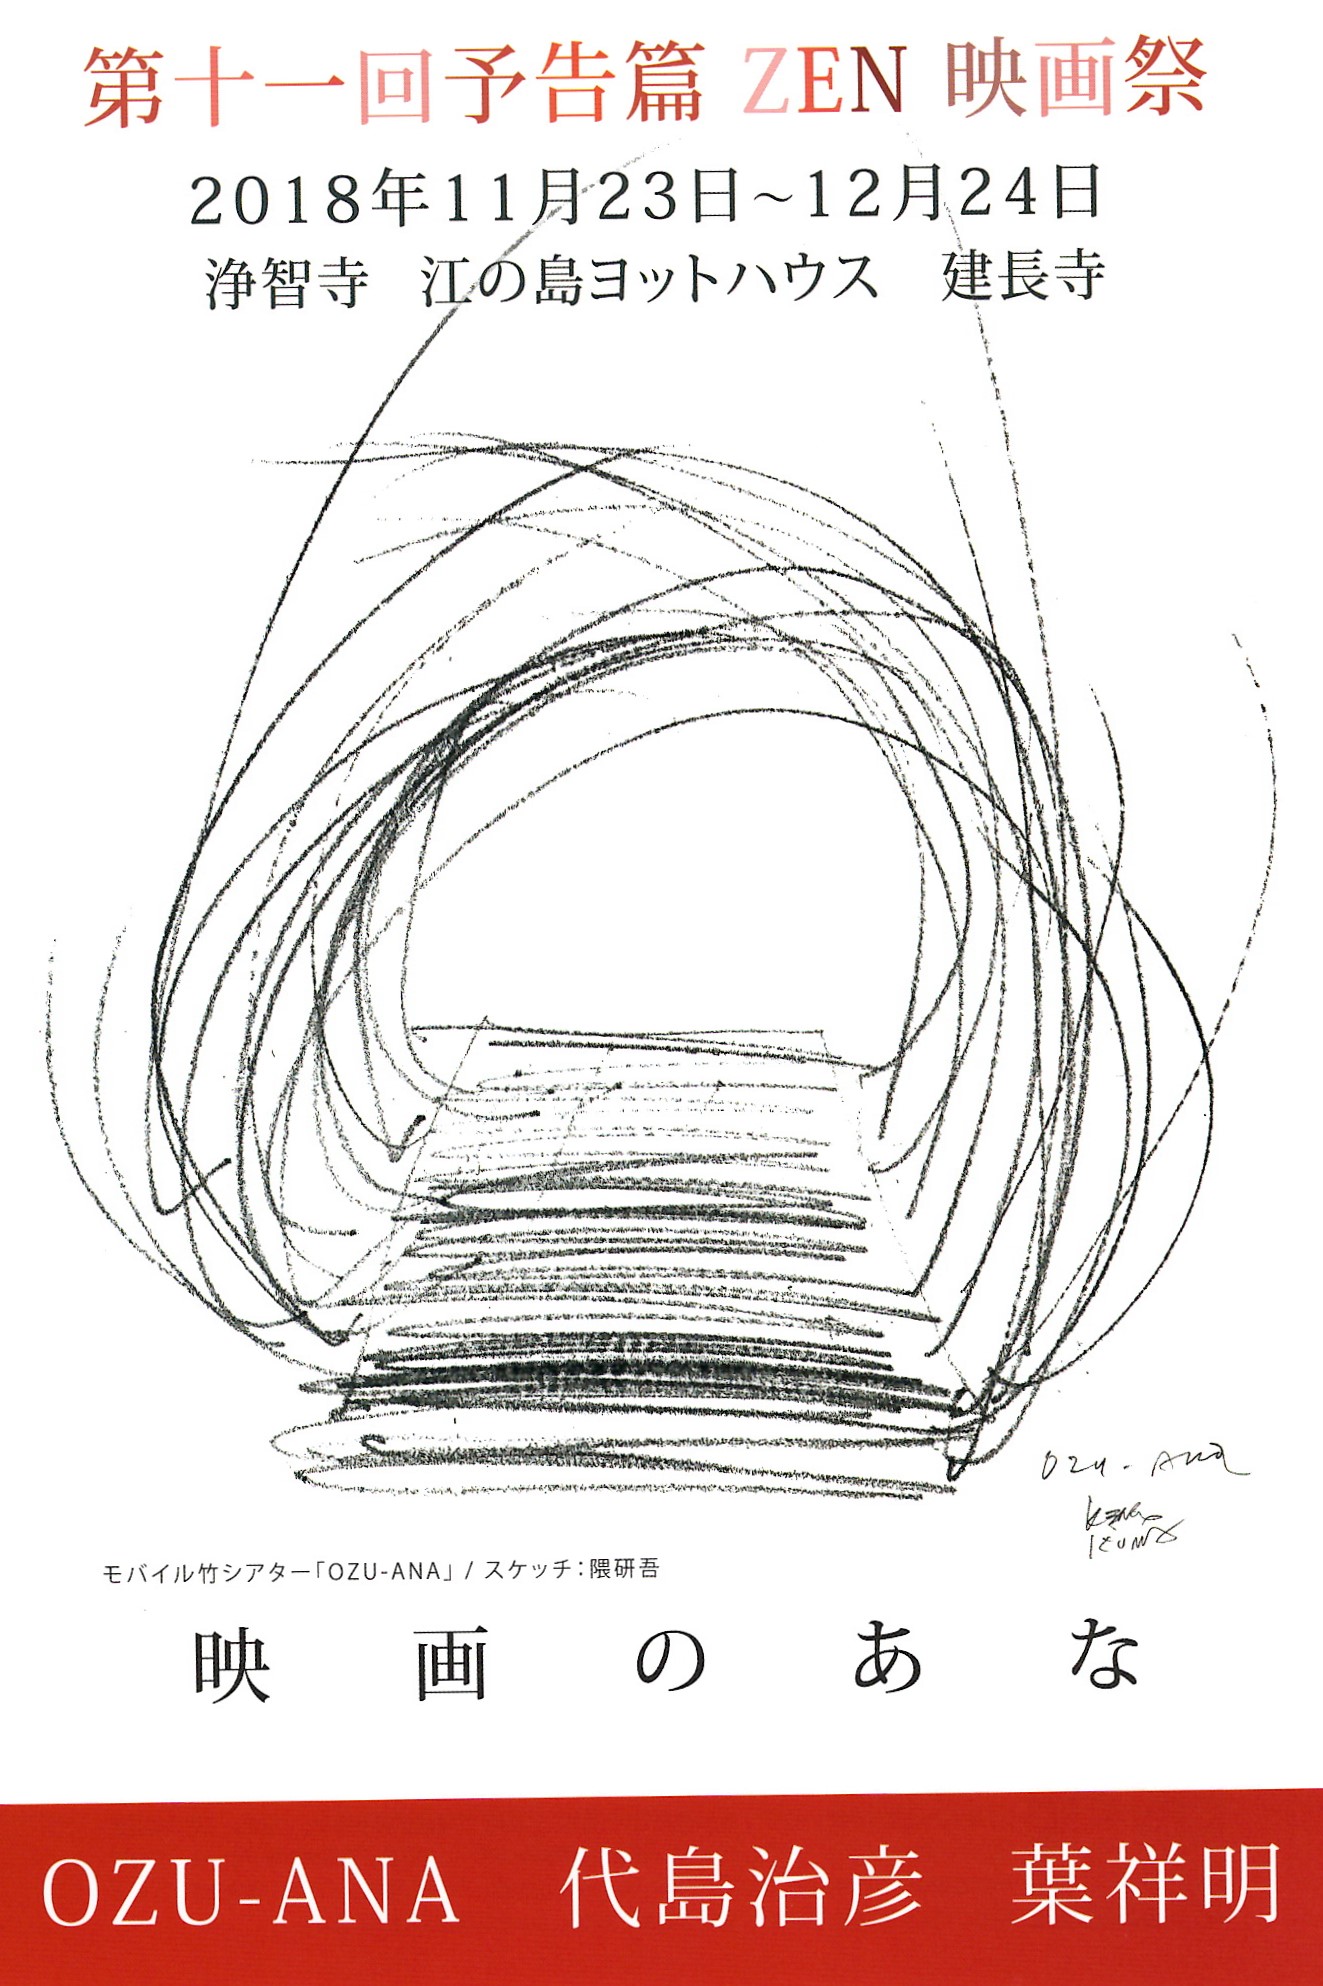 第十一回予告篇 ZEN 映画祭
2018年11月23日～12月24日
浄智寺　江の島ヨットハウス　建長寺
OZU-ANA
KENGO
KUMA
モバイル竹シアター「OZU-ANA」 / スケッチ：隈研吾
映画のあな
OZU-ANA　代島治彦　葉祥明